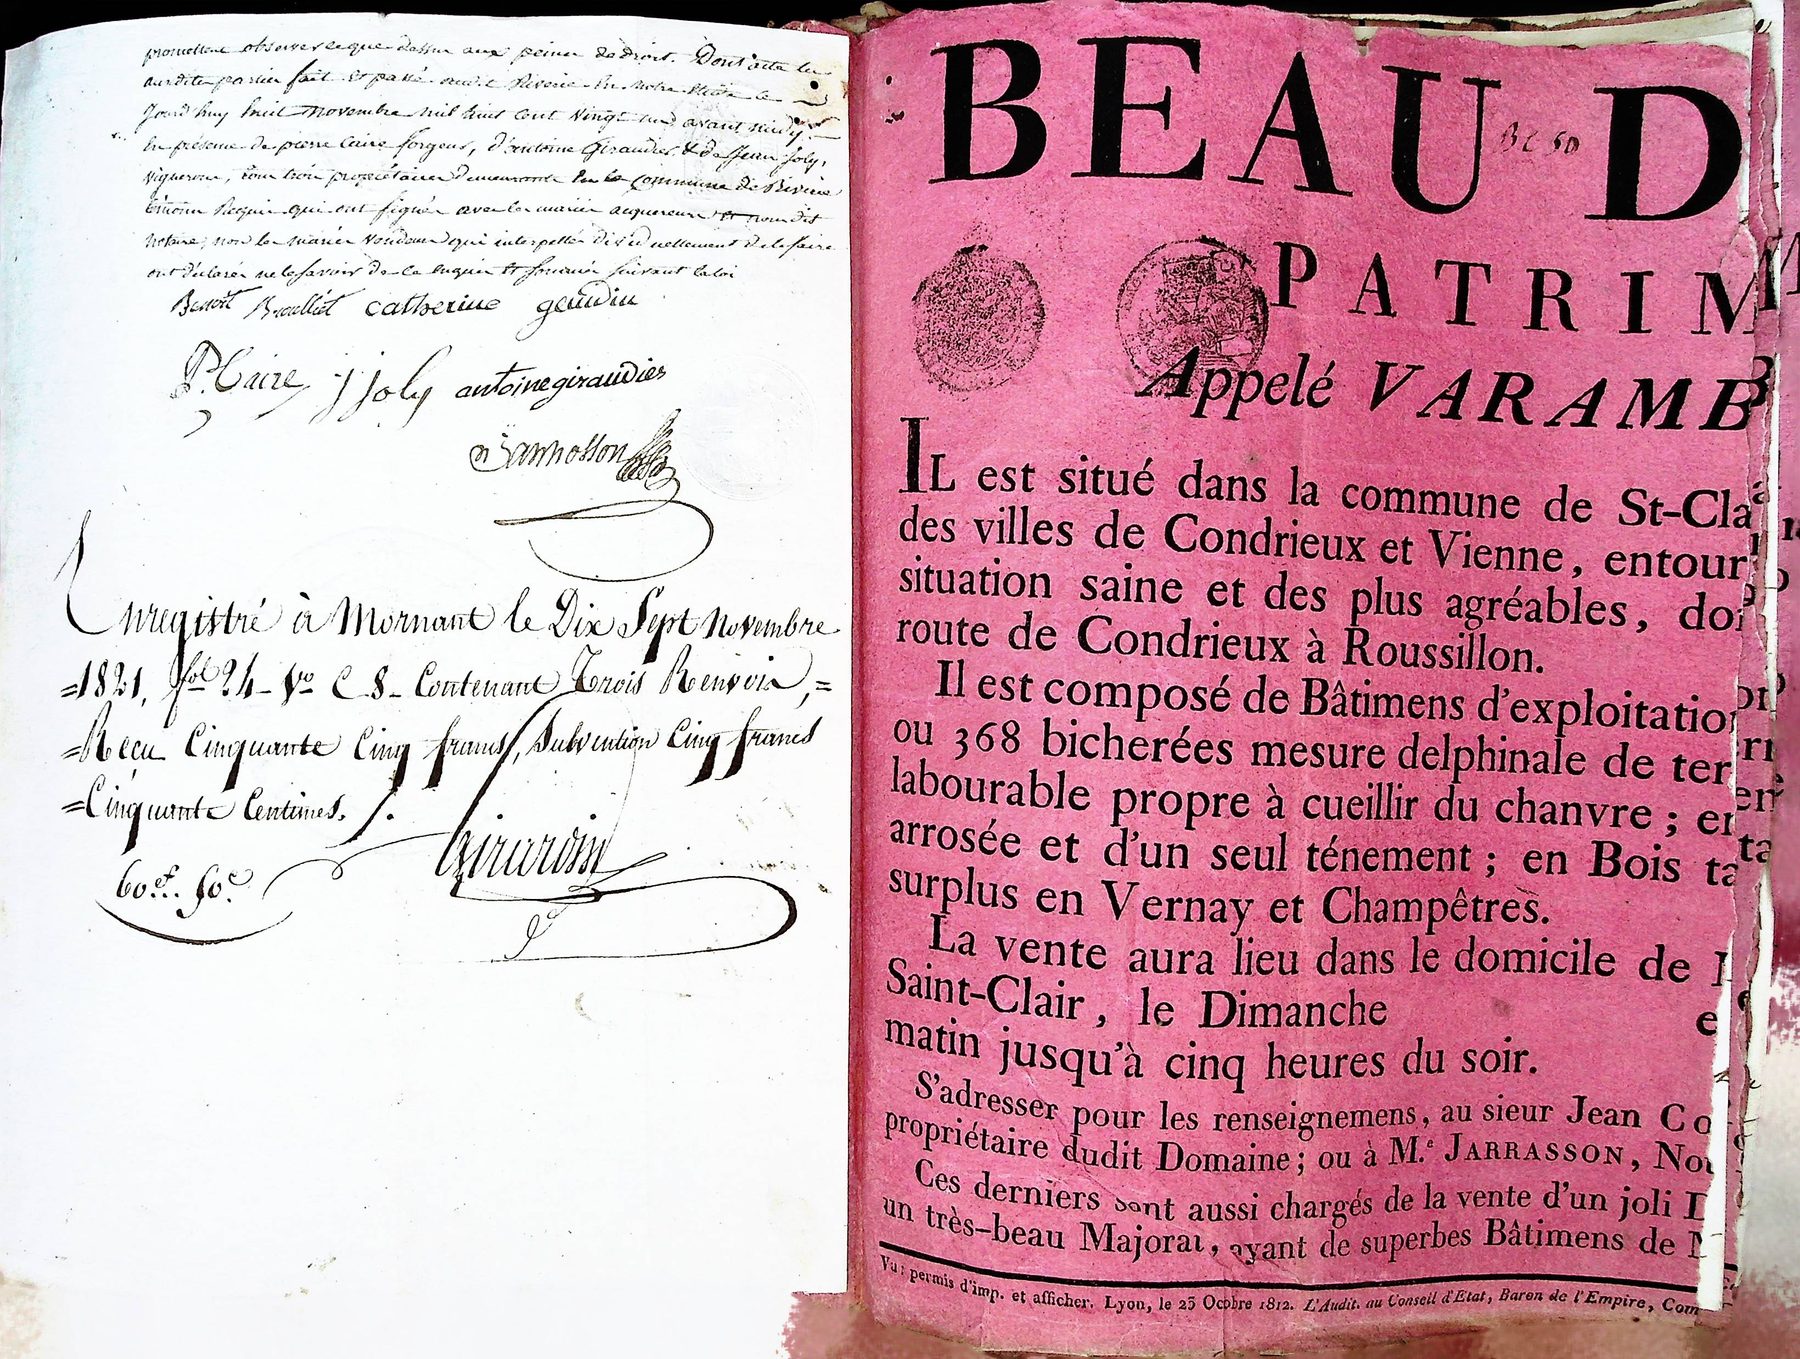 promettent observer ce que dessus aux peines de droit. Dont acte lu
aux dites parties fait et passé audit Riverie en notre étude le
Jourd'huy huit novembre mil huit cent vingt un avant midy
En présence de pierre Caire forgeur, d'antoine Giraudier & de Jean Joly,
vignerons, tous trois propriétaires demeurants en la Commune de Riverie
témoins Requis qui ont signés avec les mariés acquereurs et nous dit
notaire; non les mariés vendeurs qui interpellés dividuellement de le faire
ont déclarés ne le savoir de ce enquis et sommés suivant la loi
Benoit Broulliet catherine geudin
P. Caire j joly antoinegiraudier
Enregistré à Mornant le Dix Sept Novembre
=1821. fol 24 - Vo C 8 - Contenant Trois Renvois,=
=Recu Cinquante Cinq francs, Subvention Cinq francs
=Cinquante Centimes.
Girardin
60.f. 50.c
BEAU D
PATRIM
Appelé VARAMB
IL est situé dans la commune de St-Cla
des villes de Condrieux et Vienne, entour
situation saine et des plus agréables, do
route de Condrieux à Roussillon.
Il est composé de Bâtimens d'exploitatio
ou 368 bicherées mesure delphinale de ter
labourable propre à cueillir du chanvre ; en
arrosée et d'un seul ténement ; en Bois ta
surplus en Vernay et Champêtres.
La vente aura lieu dans le domicile de
Saint-Clair, le Dimanche e
matin jusqu'à cinq heures du soir.
S'adresser pour les renseignemens, au sieur Jean Co
propriétaire dudit Domaine ; ou à M.e JARRASSON, No
Ces derniers sont aussi chargés de la vente d'un joli D
un très-beau Majorat, ayant de superbes Bâtimens de
Vu : permis d'imp. et afficher. Lyon, le 23 Ocobre 1812. L'Audit. au Conseil d'Etat, Baron de l'Empire, Com